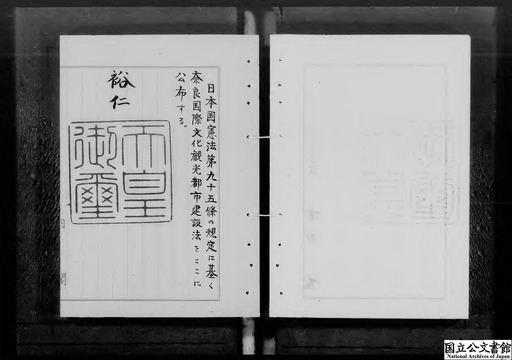 日本国憲法第九十五條の規定に基く
奈良国際文化観光都市建設法をここに
公布する。
裕仁
天皇
御璽
内閣
国立公文書館
National Archives of Japan